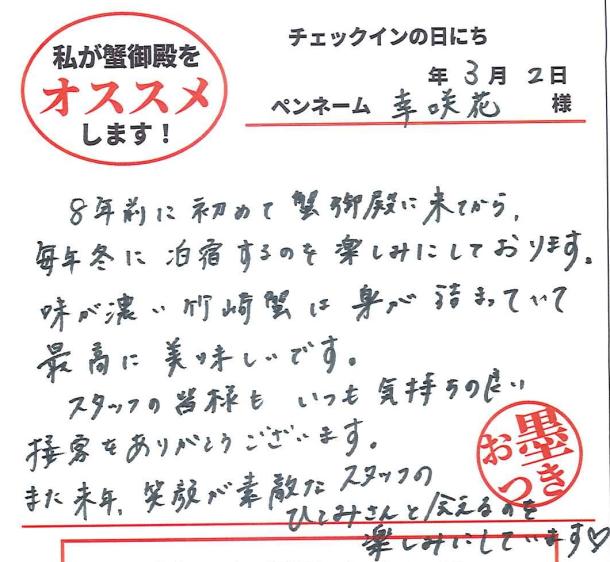 私が蟹御殿を
オススメ
します!
チェックインの日にち
年 3月 2日
ペンネーム 幸咲花 様
8年前に初めて蟹御殿に来てから、
毎年冬に泊宿するのを楽しみにしております。
味が濃い竹崎蟹は身が詰まっていて
最高に美味しいです。
スタッフの皆様も いつも気持ちの良い
接客をありがとうございます。
また来年、笑顔が素敵なスタッフの
ひとみさんと会えるのを
楽しみにしています♡
お墨つき